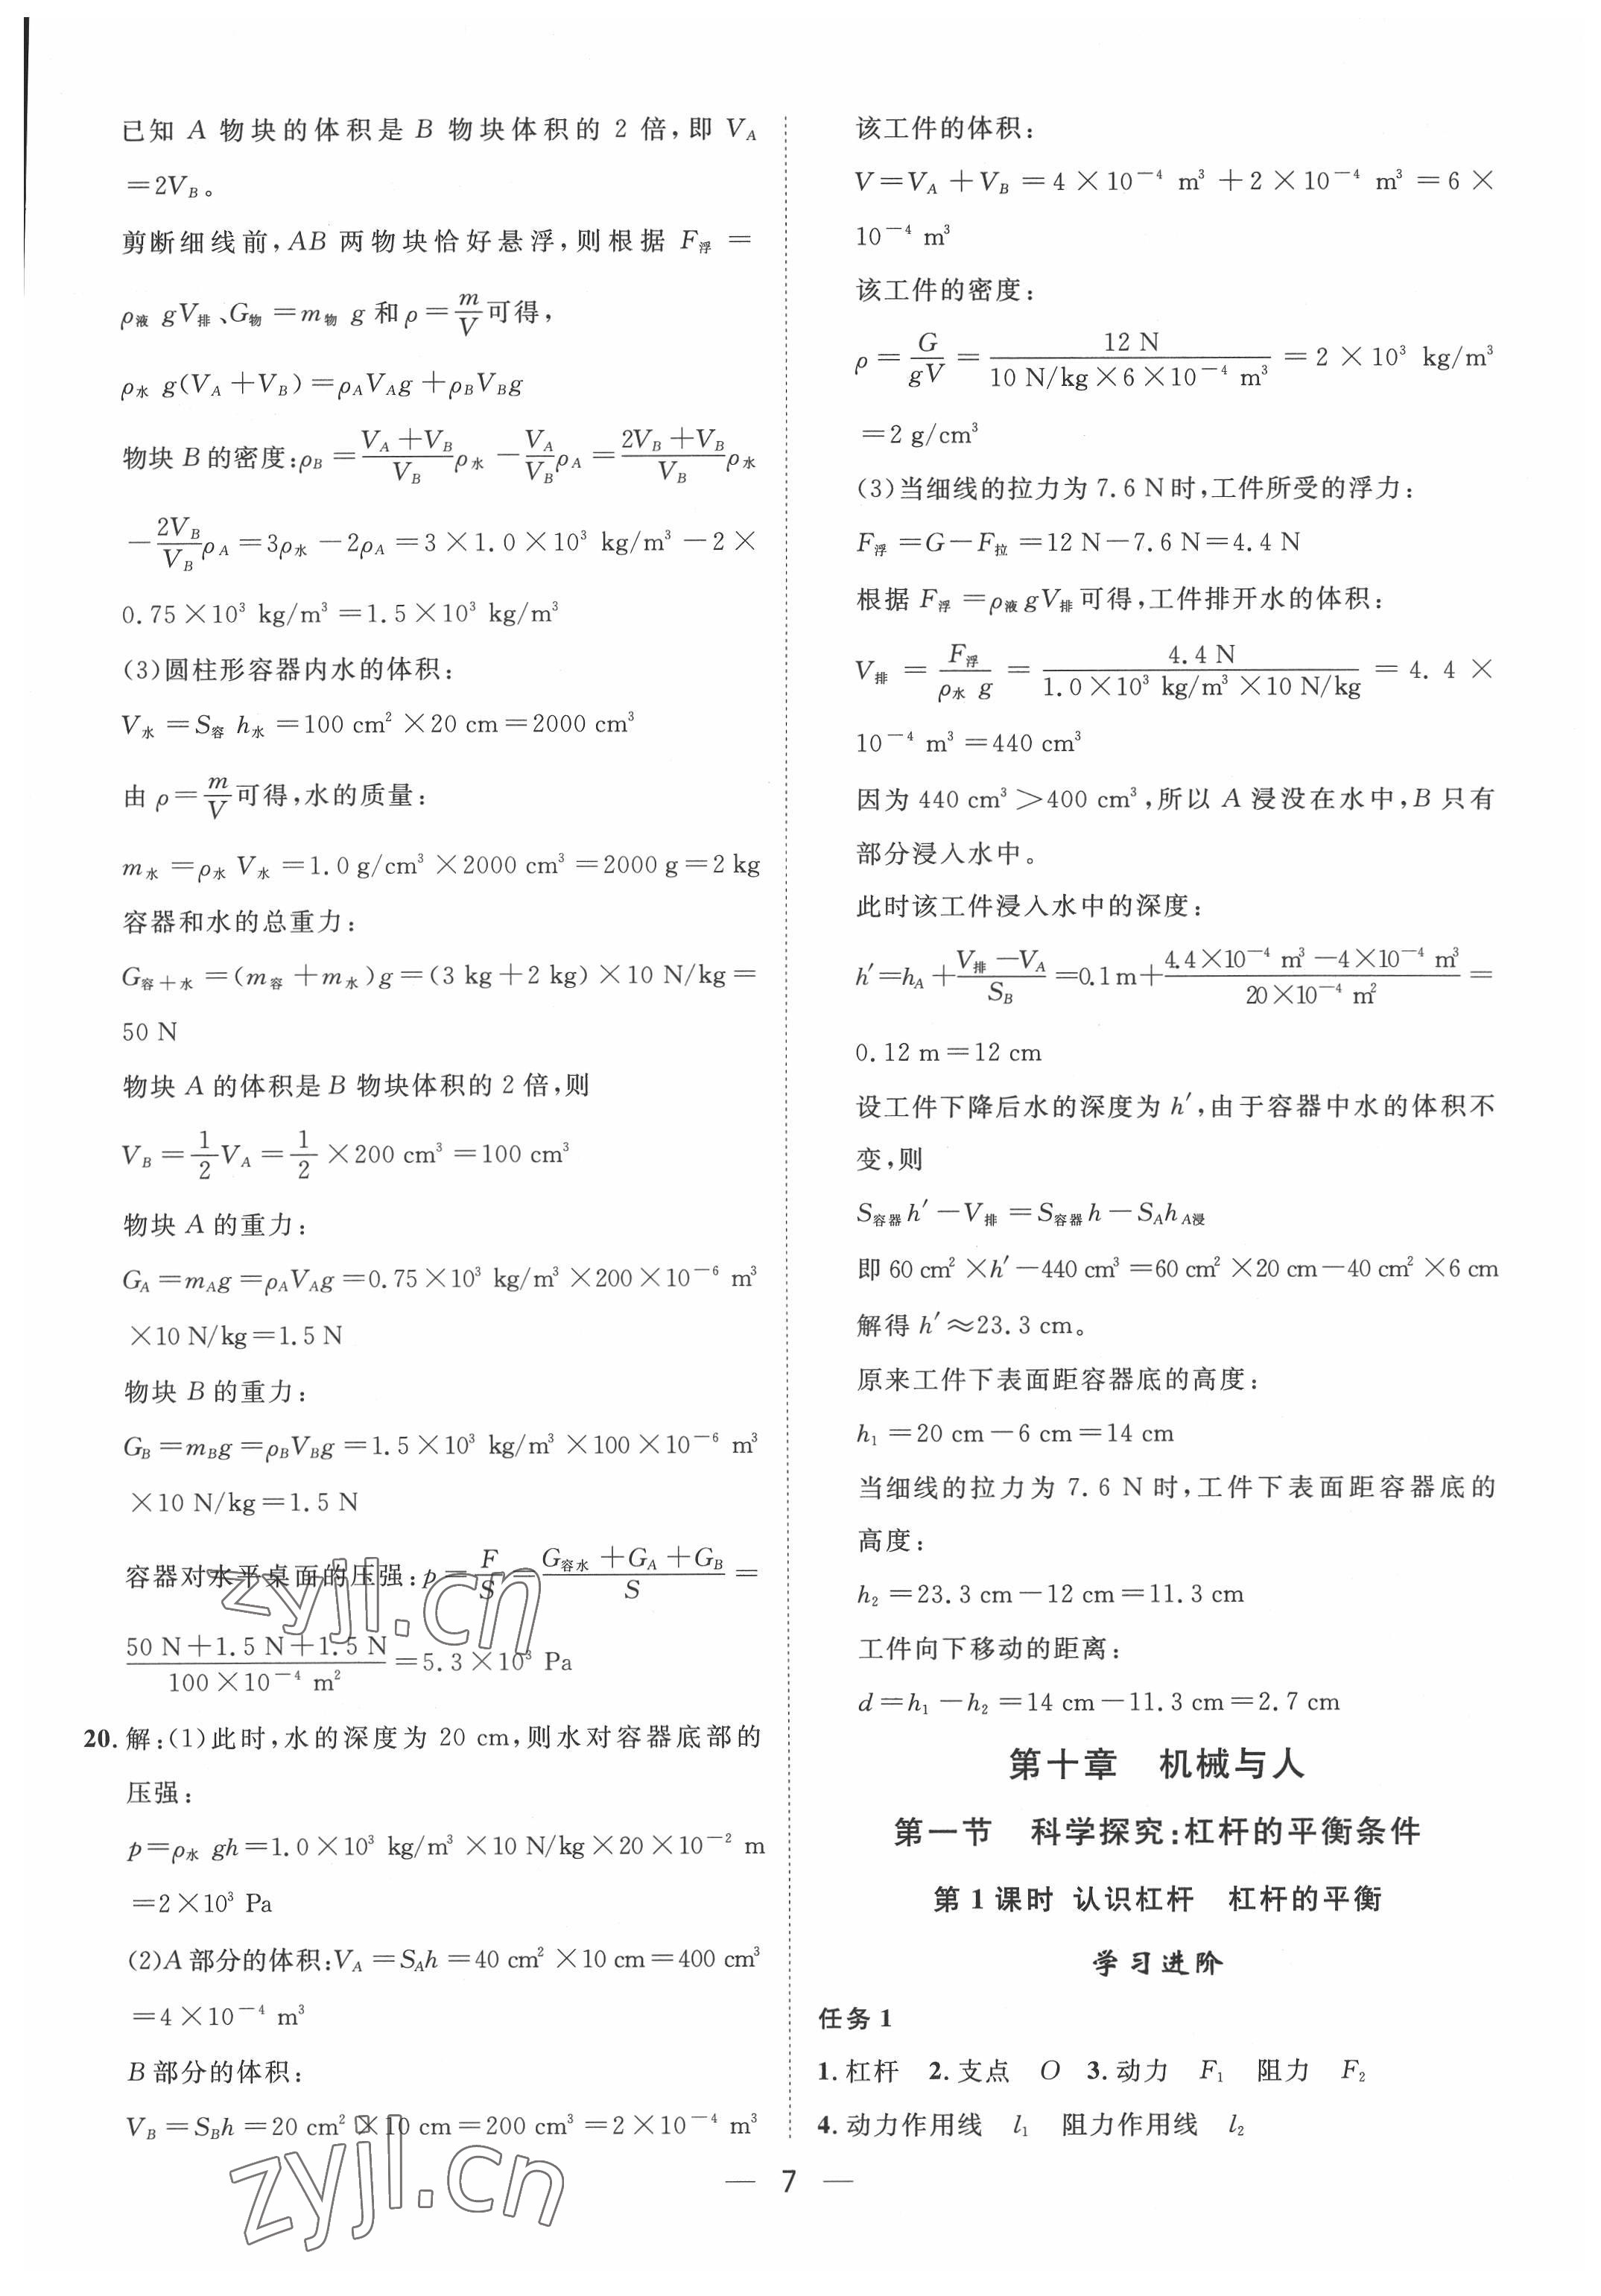 已知 A 物块的体积是 B 物块体积的 2 倍,即 V_A
=2V_B。
剪断细线前,AB 两物块恰好悬浮,则根据 F_浮 =
ρ_液 gV_排、G_物 =m_物 g 和 ρ=m/V可得,
ρ_水 g(V_A+V_B)=ρ_AV_Ag+ρ_BV_Bg
物块 B 的密度:ρ_B=(V_A+V_B)/V_B ρ_水 −V_A/V_B ρ_A=(2V_B+V_B)/V_B ρ_水
−2V_B/V_B ρ_A=3ρ_水 −2ρ_A=3×1.0×10³ kg/m³−2×
0.75×10³ kg/m³=1.5×10³ kg/m³
(3)圆柱形容器内水的体积:
V_水 =S_容 h_水 =100 cm²×20 cm=2000 cm³
由 ρ=m/V可得,水的质量:
m_水 =ρ_水 V_水 =1.0 g/cm³×2000 cm³=2000 g=2 kg
容器和水的总重力:
G_容+水 =(m_容 +m_水)g=(3 kg+2 kg)×10 N/kg=
50 N
物块 A 的体积是 B 物块体积的 2 倍,则
V_B=1/2 V_A=1/2×200 cm³=100 cm³
物块 A 的重力:
G_A=m_Ag=ρ_AV_Ag=0.75×10³ kg/m³×200×10⁻⁶ m³
×10 N/kg=1.5 N
物块 B 的重力:
G_B=m_Bg=ρ_BV_Bg=1.5×10³ kg/m³×100×10⁻⁶ m³
×10 N/kg=1.5 N
容器对水平桌面的压强:p=F/S=(G_容水 +G_A+G_B)/S=
(50 N+1.5 N+1.5 N)/(100×10⁻⁴ m²)=5.3×10³ Pa
zyjl.cn
20. 解:(1)此时,水的深度为 20 cm,则水对容器底部的
压强:
p=ρ_水 gh=1.0×10³ kg/m³×10 N/kg×20×10⁻² m
=2×10³ Pa
(2)A 部分的体积:V_A=S_Ah=40 cm²×10 cm=400 cm³
=4×10⁻⁴ m³
B 部分的体积:
V_B=S_Bh=20 cm²×10 cm=200 cm³=2×10⁻⁴ m³
zyjl.cn
该工件的体积:
V=V_A+V_B=4×10⁻⁴ m³+2×10⁻⁴ m³=6×
10⁻⁴ m³
该工件的密度:
ρ=G/gV=12 N/(10 N/kg×6×10⁻⁴ m³)=2×10³ kg/m³
=2 g/cm³
(3)当细线的拉力为 7.6 N时,工件所受的浮力:
F_浮 =G−F_拉 =12 N−7.6 N=4.4 N
根据 F_浮 =ρ_液 gV_排可得,工件排开水的体积:
V_排 =F_浮/(ρ_水 g)=4.4 N/(1.0×10³ kg/m³×10 N/kg)=4.4×
10⁻⁴ m³=440 cm³
因为 440 cm³>400 cm³,所以 A 浸没在水中,B 只有
部分浸入水中。
此时该工件浸入水中的深度:
h′=h_A+(V_排−V_A)/S_B=0.1 m+(4.4×10⁻⁴ m³−4×10⁻⁴ m³)/(20×10⁻⁴ m²)=
0.12 m=12 cm
设工件下降后水的深度为 h′,由于容器中水的体积不
变,则
S_容器 h′−V_排 =S_容器 h−S_Ah_A浸
即 60 cm²×h′−440 cm³=60 cm²×20 cm−40 cm²×6 cm
解得 h′≈23.3 cm。
原来工件下表面距容器底的高度:
h₁=20 cm−6 cm=14 cm
当细线的拉力为 7.6 N 时,工件下表面距容器底的
高度:
h₂=23.3 cm−12 cm=11.3 cm
工件向下移动的距离:
d=h₁−h₂=14 cm−11.3 cm=2.7 cm
第十章 机械与人
第一节 科学探究:杠杆的平衡条件
第 1 课时 认识杠杆 杠杆的平衡
学习进阶
任务 1
1. 杠杆 2. 支点 O 3. 动力 F₁ 阻力 F₂
4. 动力作用线 l₁ 阻力作用线 l₂
— 7 —